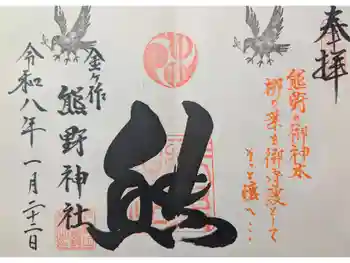 奉拝
熊野の御神木
梛の葉を御守護として
そっと懐へ…
熊
金ケ作
熊野神社
令和八年一月二十二日